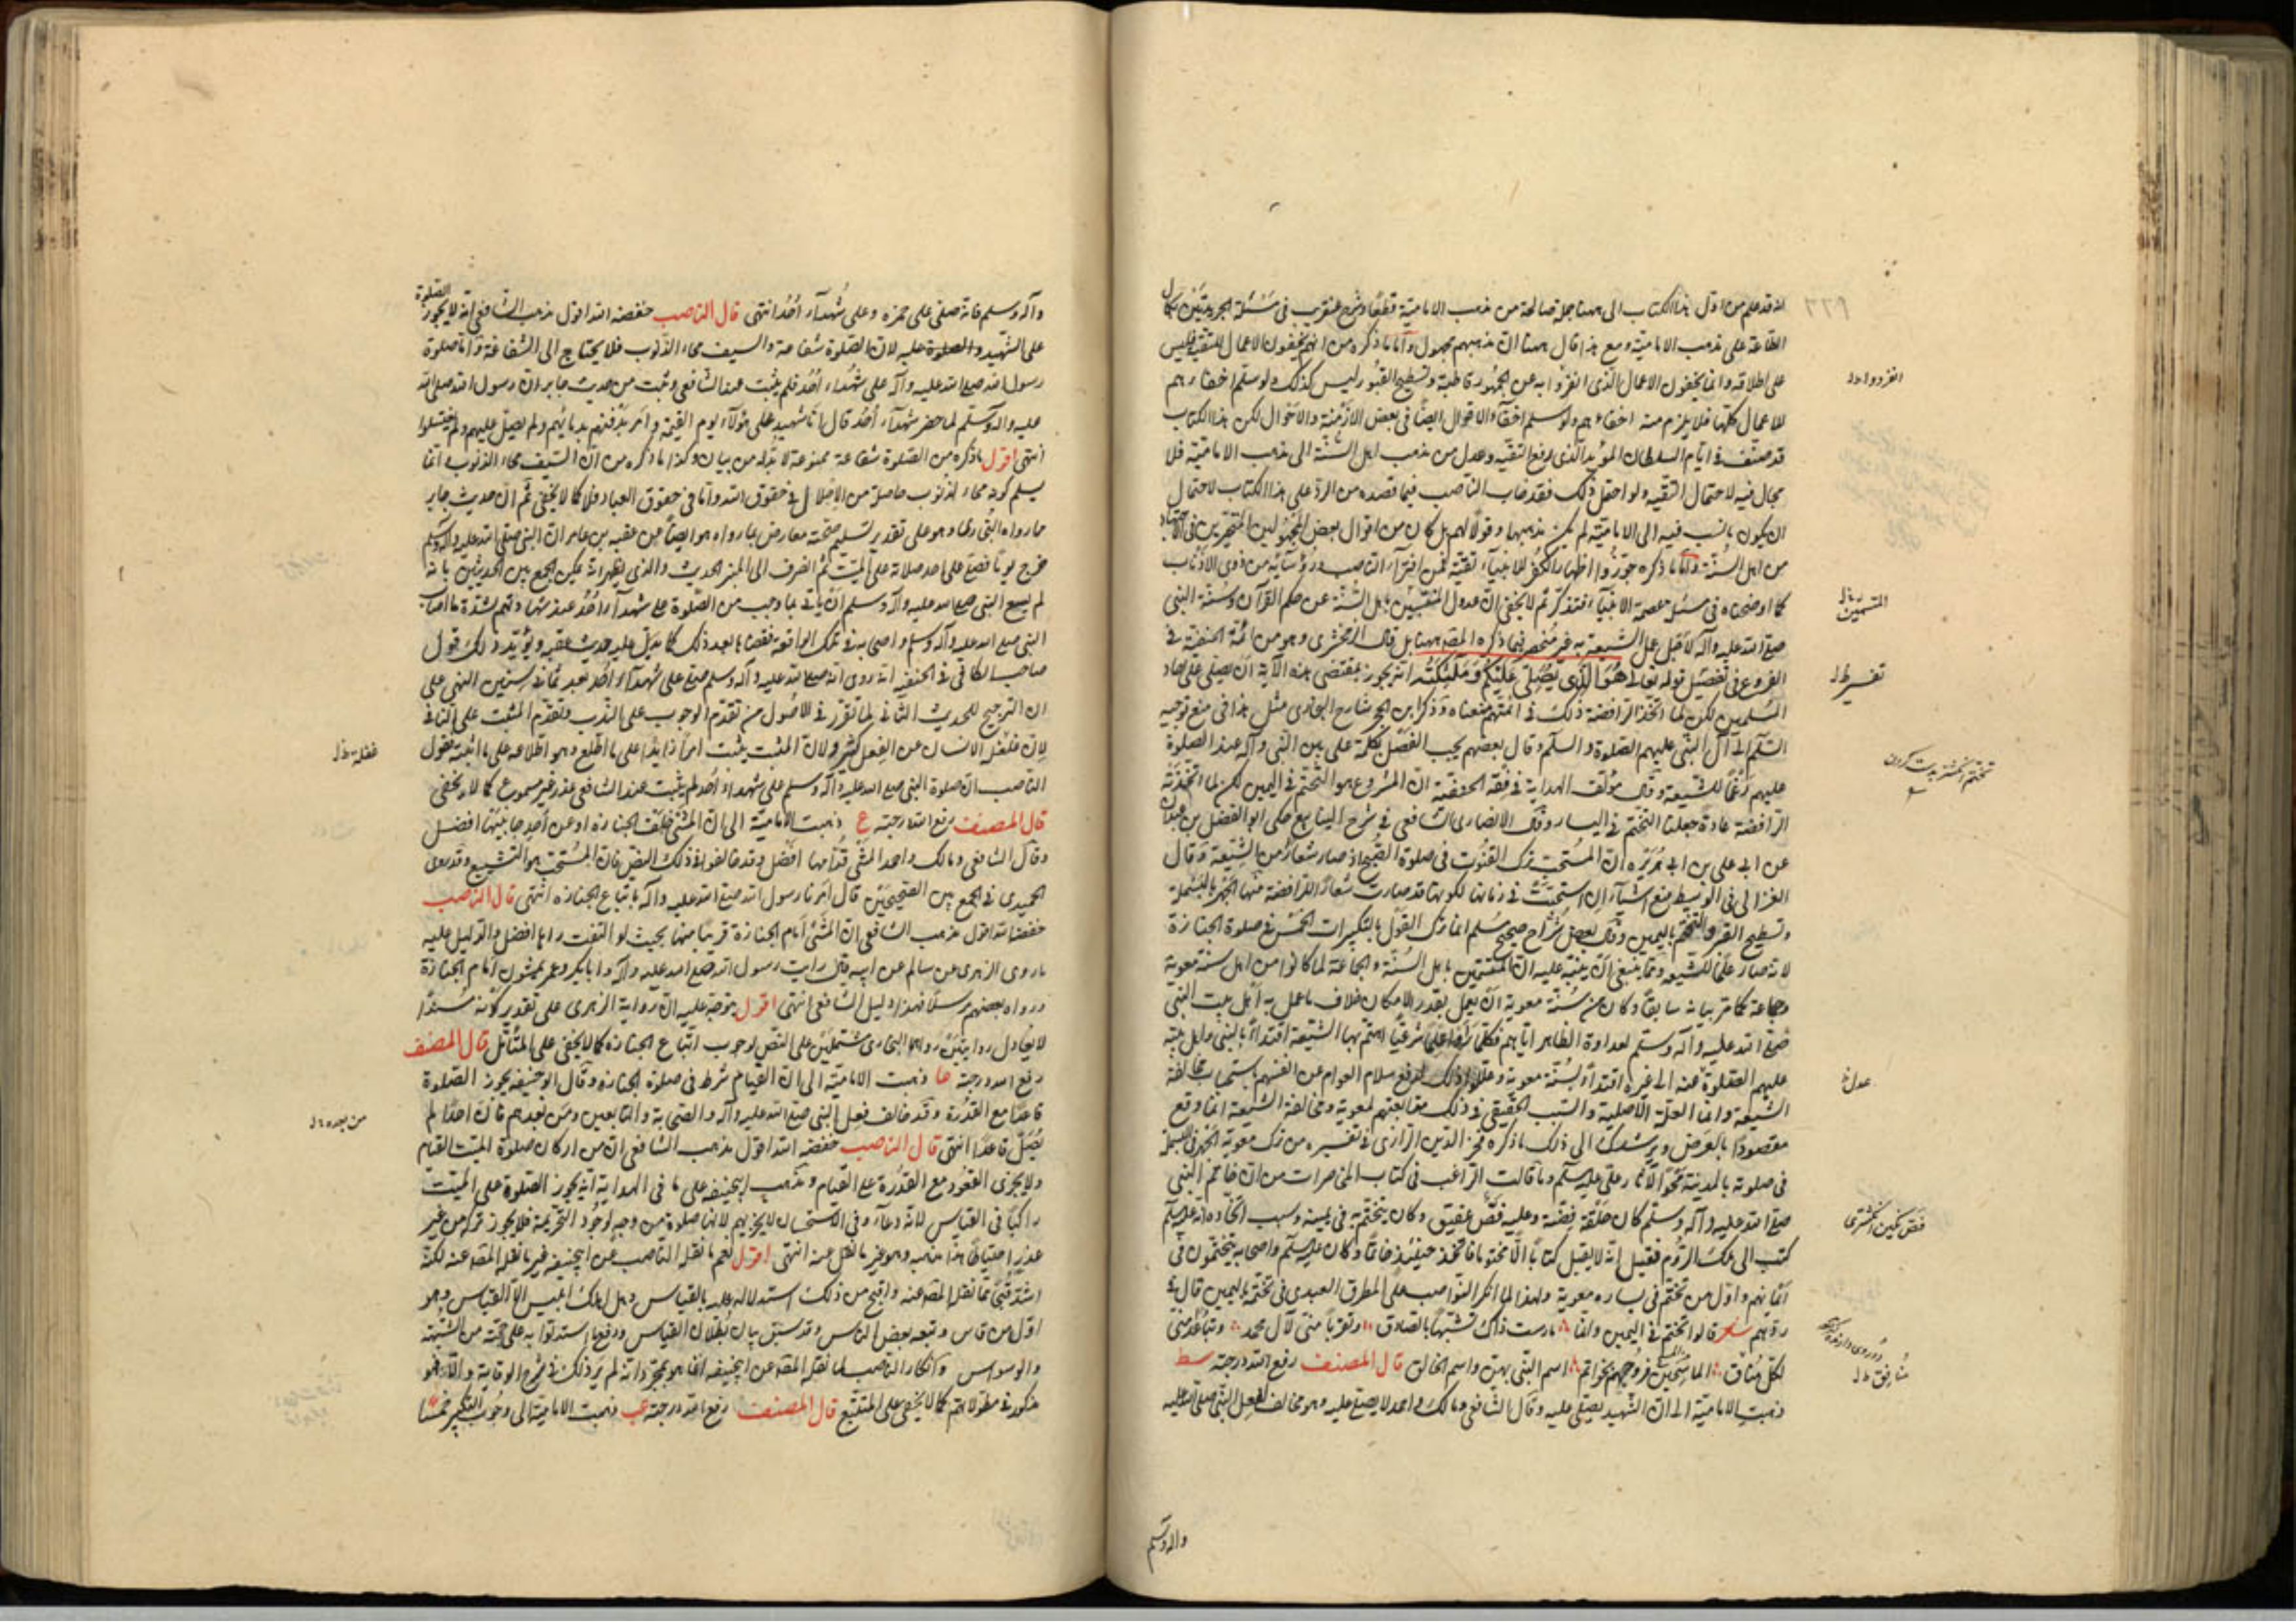 ٢٢٩
انه قد علم من اول هذا الكتاب الى ههنا جملة صالحة من مذهب الامامية قطعًا
الطاعة على مذهب الامامية ومع هذا قال ههنا ان مذهبهم مجهول واما ما ذكره من انهم يخفون الاعمال للتقية فليس
على اطلاقه وانما يخفون الاعمال الذى انفردوا به عن الجمهور قاطبة وتسطيح القبور ليس كذلك ولو سلم اخفاءهم
للاعمال كلها فلا يلزم منه اخفاءهم ولو سلم اخفاء الاقوال ايضًا فى بعض الازمنة والاحوال لكن هذا الكتاب
قد صنف فى ايام السلطان المؤيد الذى رفع التقية وعدل من مذهب اهل السنة الى مذهب الامامية فلا
مجال فيه لاحتمال التقية ولو احتمل ذلك فقد خاب الناصب فيما قصده من الرد على هذا الكتاب لاحتمال
ان يكون ما نسب فيه الى الامامية لم يكن مذهبها وقولًا لهم بل كان من اقوال بعض
من اهل السنة واما ما ذكره جوزوا اظهار الكفر للانبياء تقية فمن افتراء الناصب ورؤسائه من ذوى الاذناب
كما اوضحناه فى مسئلة عصمة الانبياء فتذكر ثم لا يخفى ان عدول باهل السنة عن حكم القرآن وسنة النبى
صلى الله عليه وآله لاجل عمل الشيعة به غير منحصر فيما ذكره المص ههنا بل قال الزمخشرى وهو من ائمة الحنفية فى
الفروع فى تفصيل قوله تعالى هُوَ الَّذى يُصَلّى عَلَيْكُمْ وَمَلٰئِكَتُه انه يجوز بمقتضى هذه الآية ان يصلى على احاد
المسلمين لكن لما اتخذ الرافضة ذلك فى ائمتهم منعناه وذكر ابن حجر شارح البخارى مثل هذا فى منع توجيه
السلام الى آل النبى عليهم الصلوة والسلام وقال بعضهم يجب الفصل بكلمة على بين النبى وآله عند الصلوة
عليهم رغمًا للشيعة وقال مؤلف الهداية فى فقه الحنفية ان المشروع هو التختم فى اليمين لكن لما اتخذته
الرافضة عادة جعلنا التختم فى اليسار وقال الانصارى الشافعى فى شرح الينابيع حكى ابو الفضل بن عبدان
عن ابى على بن ابى هريرة ان المستحب ترك القنوت فى صلوة الصبح اذ صار شعار من الشيعة وقال
الغزالى فى الوسيط منع اشياء استحبت فى زماننا لكونها قد صارت شعارًا للرافضة منها الجهر بالبسملة
وتسطيح القبر والتختم باليمين وقال بعض شراح صحيح مسلم انما ترك القول بالتكبيرات الخمس فى صلوة الجنازة
لانه صار علمًا للشيعة ومما ينبغى ان ينبه عليه ان المسمين باهل السنة والجماعة لما كانوا من اهل سنة معوية
وجماعة كما مر بيانه سابقًا وكان من سنة معوية ان يعمل بقدر الامكان خلاف ما عمل به اهل بيت النبى
صلى الله عليه وآله وسلم لعداوة الظاهر اياهم فكلما اهتم بها الشيعة اقتداءً بالنبى واهل بيته
عليهم الصلوة عنه الى غيره اقتداءً بسنة معوية وعللوا ذلك لدفع سلام العوام عن انفسهم باستحباب مخالفة
الشيعة وانما العلة الاصلية والسبب الحقيقى فى ذلك متابعتهم لمعوية ومخالفة الشيعة انما وقع
مقصودًا بالعرض ويرشدك الى ذلك ما ذكره فخر الدين الرازى فى تفسيره من ترك معوية الجهر فى البسملة
فى صلوته بالمدينة محوًا لآثار على عليه السلام وما قالت الراغب فى كتاب المحاضرات من ان خاتم النبى
صلى الله عليه وآله وسلم كان حلقة فضة وعليه فص عقيق وكان يتختم به فى يمينه وسبب اتخاذه انه عليه السلام
كتب الى ملك الروم فقيل انه لا يقبل كتابًا الا مختومًا فاتخذ حينئذ خاتمًا وكان عليه السلام واصحابه يتختمون فى
ايمانهم واول من تختم فى يساره معوية ولهذا لما انكر النواصب على المطرق العبدى فى تختمه باليمين قال فى
ردهم شعر قالوا تختم فى اليمين وانما مارست ذاك تشبهًا بالصادق وتقربًا منى لآل محمد وتباعد منى
لكل منافق الماسحين فروجهم بخواتم اسم النبى بهن واسم الخالق قال المصنف رفع الله درجته سط
ذهبت الامامية الى ان الشهيد يصلى عليه وقال الشافعى ومالك واحمد لا يصلى عليه وهو مخالف لفعل النبى صلى الله عليه
وآله وسلم
انفردوا
المتسمين
تفسير
تختم انگشتر بدست كردن
عدل
فص نگين انگشترى
منافق
وآله وسلم فانه صلى على حمزة وعلى شهداء احد انتهى قال الناصب خفضه الله اقول مذهب الشافعى انه لا يجوز الصلوة
على الشهيد والصلوة عليه لان الصلوة شفاعة والسيف محاء الذنوب فلا يحتاج الى الشفاعة واما صلوة
رسول الله صلى الله عليه وآله على شهداء احد فلم يثبت عند الشافعى وثبت من حديث جابر ان رسول الله صلى الله
عليه وآله وسلم لما حضر شهداء احد قال انا شهيد على هؤلاء يوم القيمة وامر بدفنهم بدمائهم ولم يصل عليهم ولم يغتسلوا
انتهى اقول ما ذكره من الصلوة شفاعة ممنوعة لا بد له من بيان وكذا ما ذكره من ان السيف محاء الذنوب وانما
يسلم كونه محاء لذنوب حاصلة من الاخلال فى حقوق الله واما فى حقوق العباد فلا كما لا يخفى ثم ان حديث جابر
مما رواه البخارى وهو على تقدير تسليم صحته معارض بما رواه هو ايضًا عن عقبة بن عامر ان النبى صلى الله عليه وآله وسلم
خرج يومًا فصلى على احد صلاته على الميت ثم انصرف الى المنبر الحديث والذى يظهر انه يمكن الجمع بين الحديثين بانه
لم يسع النبى صلى الله عليه وآله وسلم ان يأتى بما وجب من الصلوة على شهداء احد عند شهادتهم لشدة ما اصاب
النبى صلى الله عليه وآله وسلم واصحابه فى تلك الواقعة فقضاها بعد ذلك كما يدل عليه حديث عقبة ويؤيد ذلك قول
صاحب الكافى فى الحنفية انه روى انه صلى الله عليه وآله وسلم صلى على شهداء احد بعد ثمانى سنين انتهى على
ان الترجيح للحديث الثانى لما تقرر فى الاصول من تقدم الوجوب على الندب وتقدم المثبت على النافى
لان غفلة الانسان عن الفعل كثير ولان المثبت يثبت امرًا زايدًا على ما اطلع وهو اطلاعه على ما اثبته بقول
الناصب ان صلوة النبى صلى الله عليه وآله وسلم على شهداء احد لم يثبت عند الشافعى عذر غير مسموع كما لا يخفى
قال المصنف رفع الله درجته ع ذهبت الامامية الى ان المشى خلف الجنازة او عن احد جانبيها افضل
وقال الشافعى ومالك واحمد المشى قدامها افضل وقد خالفوا فى ذلك النص فان المستحب هو التشييع وقد روى
الحميدى فى الجمع بين الصحيحين قال امرنا رسول الله صلى الله عليه وآله باتباع الجنازة انتهى قال الناصب
خفضه الله اقول مذهب الشافعى ان المشى امام الجنازة قريبًا منها بحيث لو التفت رآها افضل والدليل عليه
ما روى الزهرى عن سالم عن ابيه قال رايت رسول الله صلى الله عليه وآله وابا بكر وعمر يمشون امام الجنازة
ورواه بعضهم مرسلًا فهذا دليل الشافعى انتهى اقول يتوجه عليه ان رواية الزهرى على تقدير كونه مسندًا
لا يعادل روايتين رواهما البخارى مشتملتين على النص لوجوب اتباع الجنازة كما لا يخفى على المتأمل قال المصنف
رفع الله درجته عا ذهبت الامامية الى ان القيام شرط فى صلوة الجنازة وقال ابو حنيفة يجوز الصلوة
قاعدًا مع القدرة وقد خالف فعل النبى صلى الله عليه وآله والصحابة والتابعين ومن بعدهم فان احدًا لم
يصل قاعدًا انتهى قال الناصب خفضه الله اقول مذهب الشافعى ان من اركان صلوة الميت القيام
ولا يجزى القعود مع القدرة على القيام ومذهب ابى حنيفة على ما فى الهداية انه يجوز الصلوة على الميت
راكبًا فى القياس لانه دعاء وفى الاستحسان لا يجزيهم لانها صلوة من وجه لوجود التحريمة فلا يجوز تركه من غير
عذر احتياطًا هذا مذهبه وهو غير ما نقل عنه انتهى اقول نعم ما نقله الناصب عن ابى حنيفة غير ما نقله المص عنه لكنه
اشد قبحًا مما نقله المص عنه واقبح من ذلك استدلاله عليه بالقياس وهل اهلك ابليس الا القياس وهو
اول من قاس وتبعه بعض الناس وقد سبق بيان بطلان القياس ودفع ما استدلوا به على حجته من الشبهة
والوسواس وانكار الناصب لما نقله المص عن ابى حنيفة انما هو بمجرد انه لم ير ذلك فى شرح الوقاية والا فهو
مذكور فى مطولاتهم كما لا يخفى على المتتبع قال المصنف رفع الله درجته عب ذهبت الامامية الى وجوب التكبير خمسًا
غفلة
من بعده